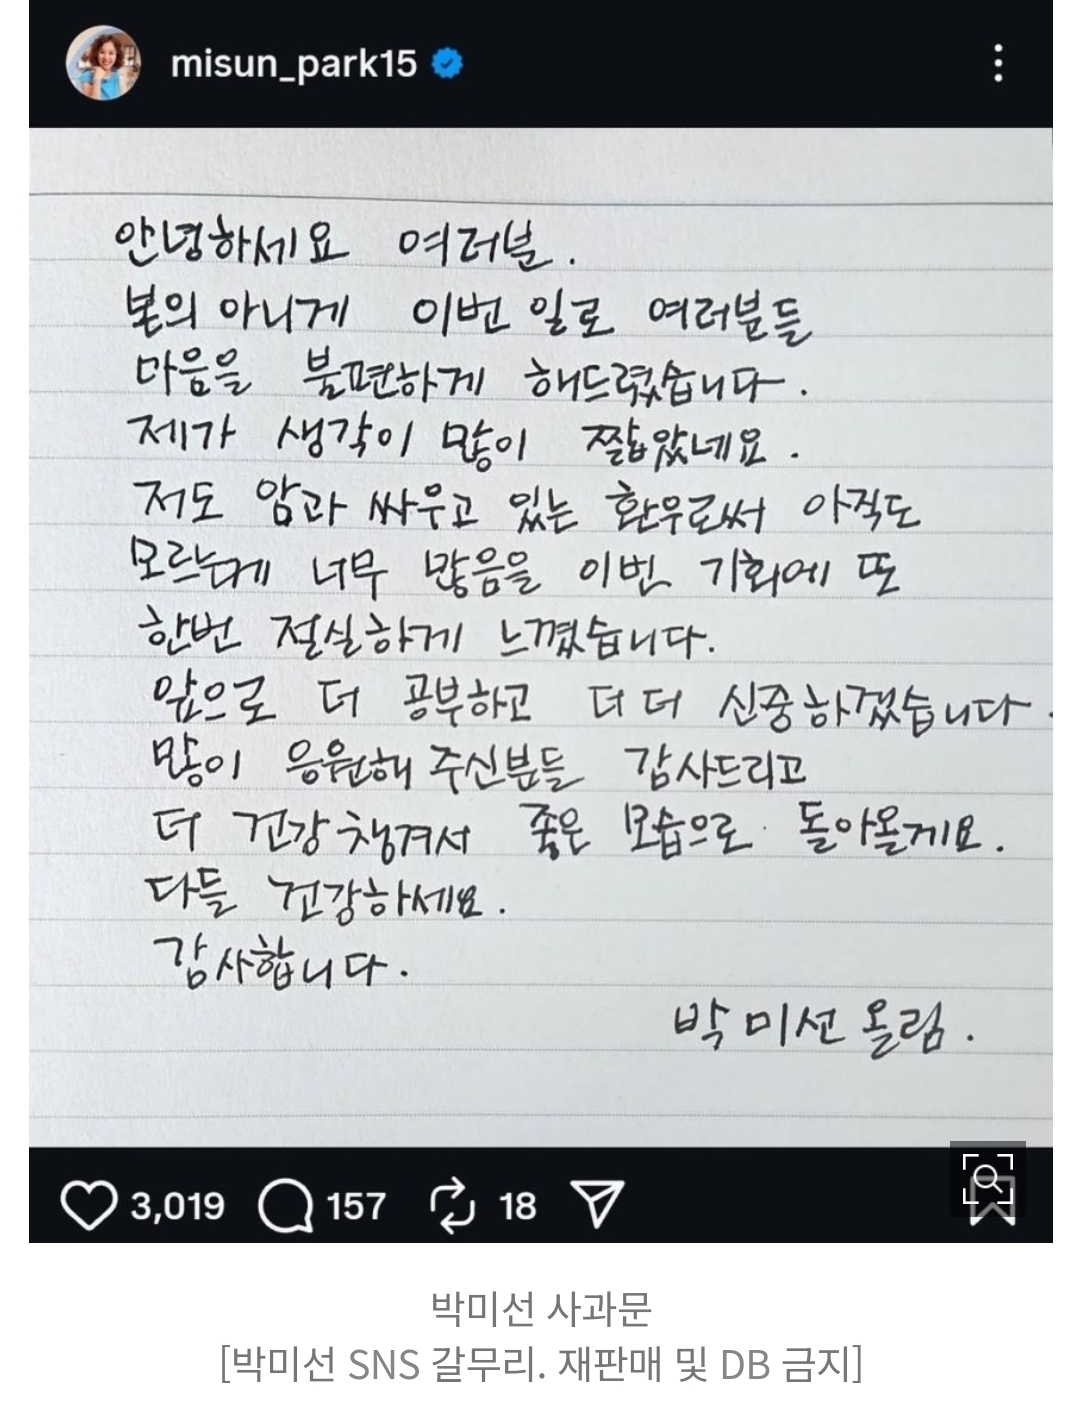 misun_park15
안녕하세요 여러분.
본의 아니게 이번 일로 여러분들
마음을 불편하게 해드렸습니다.
제가 생각이 많이 짧았네요.
저도 암과 싸우고 있는 환우로써 아직도
모르는게 너무 많음을 이번 기회에 또
한번 절실하게 느꼈습니다.
앞으로 더 공부하고 더 더 신중하겠습니다.
많이 응원해 주신분들 감사드리고
더 건강 챙겨서 좋은 모습으로 돌아올게요.
다들 건강하세요.
감사합니다.
박미선 올림.
3,019 157 18
박미선 사과문
[박미선 SNS 갈무리. 재판매 및 DB 금지]